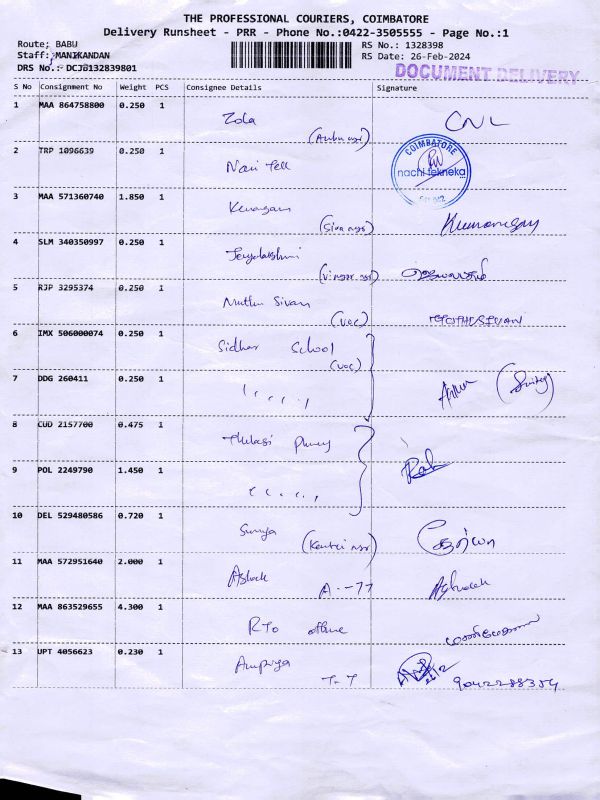 THE PROFESSIONAL COURIERS, COIMBATORE
Delivery Runsheet - PRR - Phone No.:0422-3505555 - Page No.:1
Route; BABU
Staff: MANIKANDAN
DRS No.: DCJB132839801
RS No.: 1328398
RS Date: 26-Feb-2024
DOCUMENT DELIVERY
S No Consignment No Weight PCS Consignee Details Signature
1 MAA 864758800 0.250 1 Zola
2 TRP 1096639 0.250 1
COIMBATORE
nachi tekneka
3 MAA 571360740 1.850 1
(Siva ngr)
4 SLM 340350997 0.250 1 Jeyalakshmi
5 RJP 3295374 0.250 1 Muthu Sivan
(voc)
6 IMX 506000074 0.250 1 Sidhar School
(voc)
7 DDG 260411 0.250 1
8 CUD 2157700 0.475 1
9 POL 2249790 1.450 1
10 DEL 529480586 0.720 1 Surya
11 MAA 572951640 2.000 1 Ashok
12 MAA 863529655 4.300 1 RTO office
13 UPT 4056623 0.230 1
T-7 9042288354